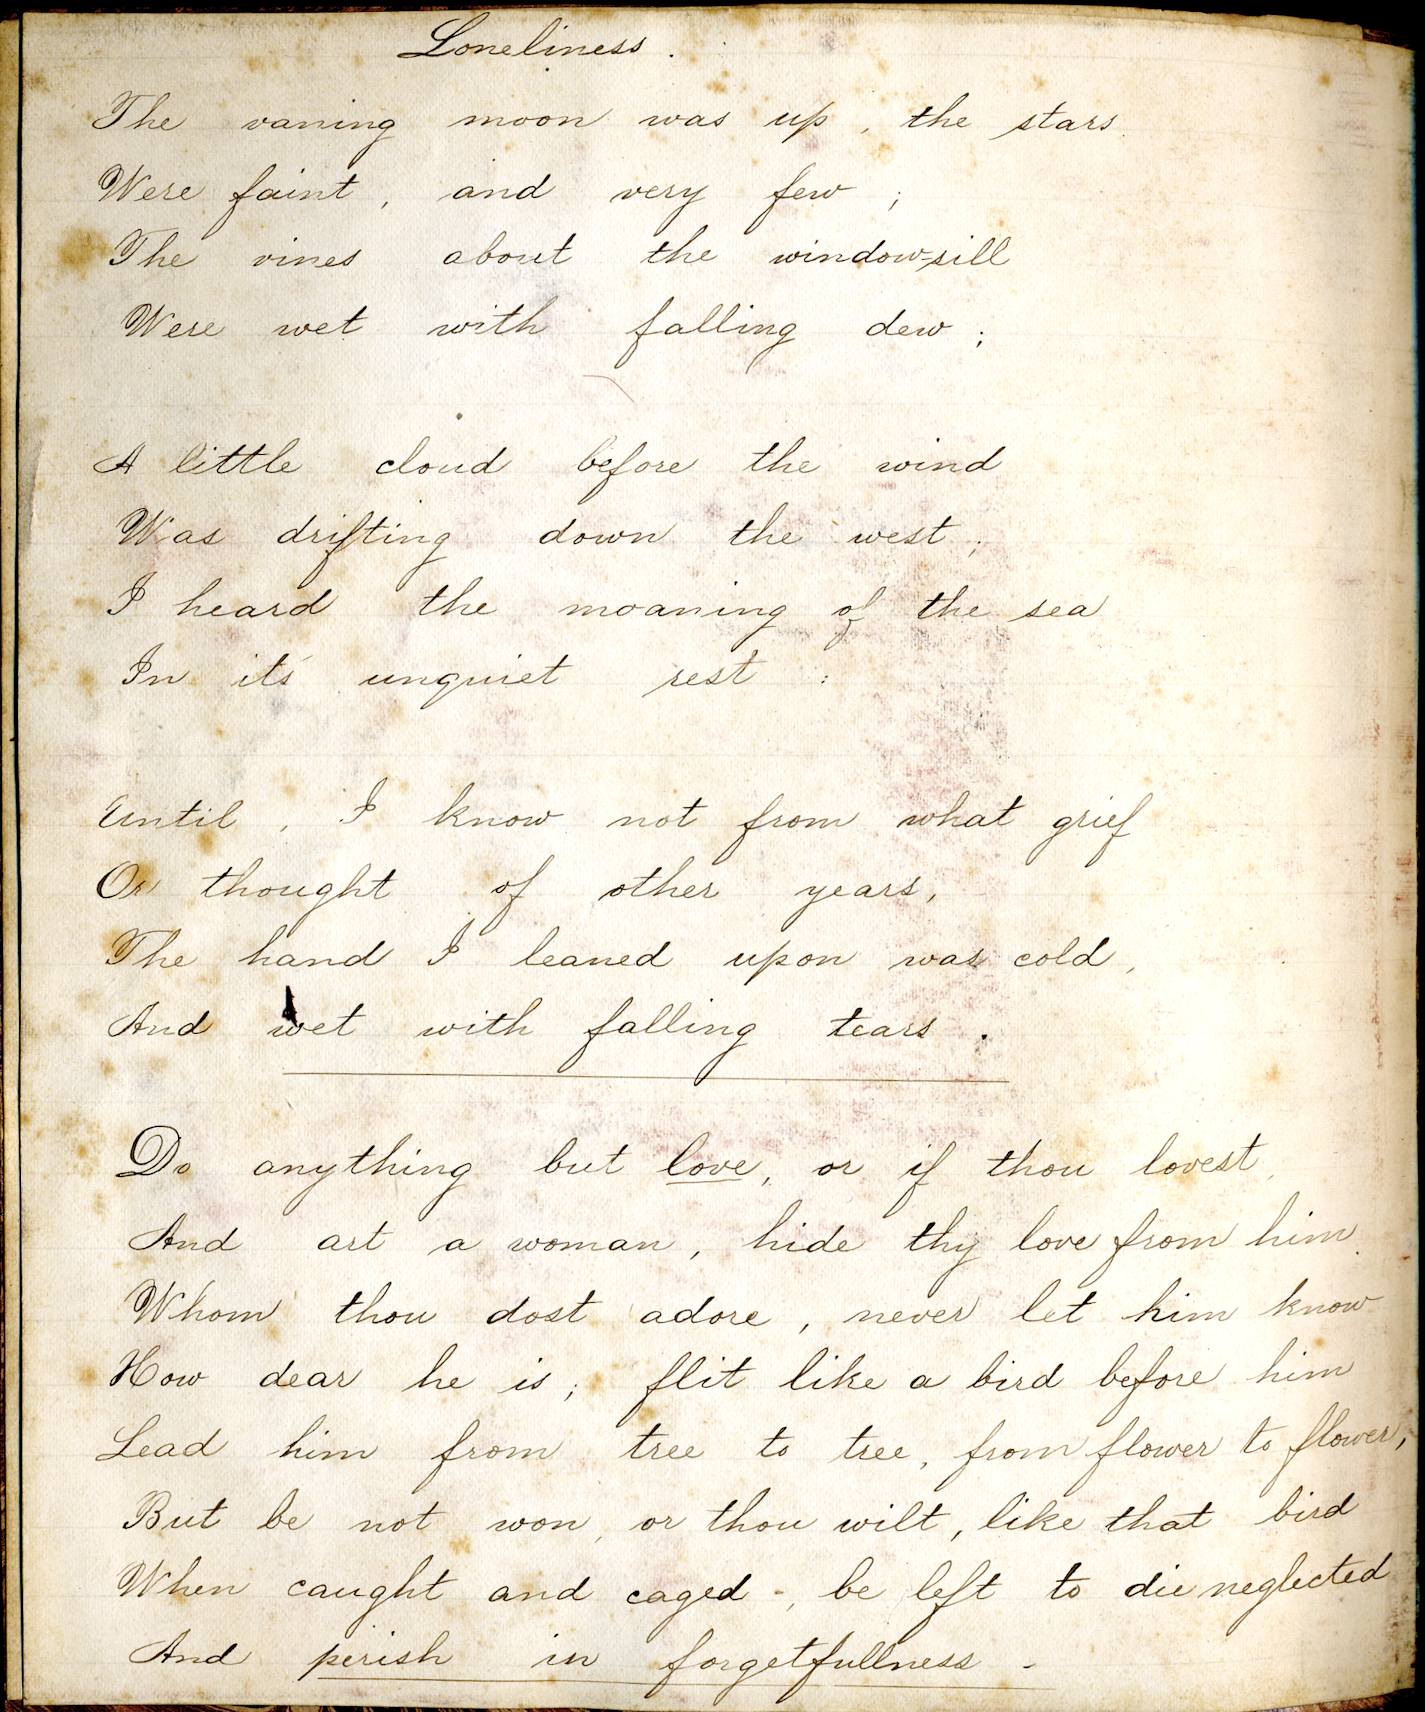 Loneliness.
The vaning moon was up, the stars
Were faint, and very few;
The vines about the window-sill
Were wet with falling dew;
A little cloud before the wind
Was drifting down the west;
I heard the moaning of the sea
In its unquiet rest:
Until, I know not from what grief
Or thought of other years,
The hand I leaned upon was cold,
And wet with falling tears.
Do anything but love, or if thou lovest,
And art a woman, hide thy love from him
Whom thou dost adore, never let him know
How dear he is; flit like a bird before him
Lead him from tree to tree, from flower to flower,
But be not won, or thou wilt, like that bird
When caught and caged -, be left to die neglected
And perish in forgetfullness -